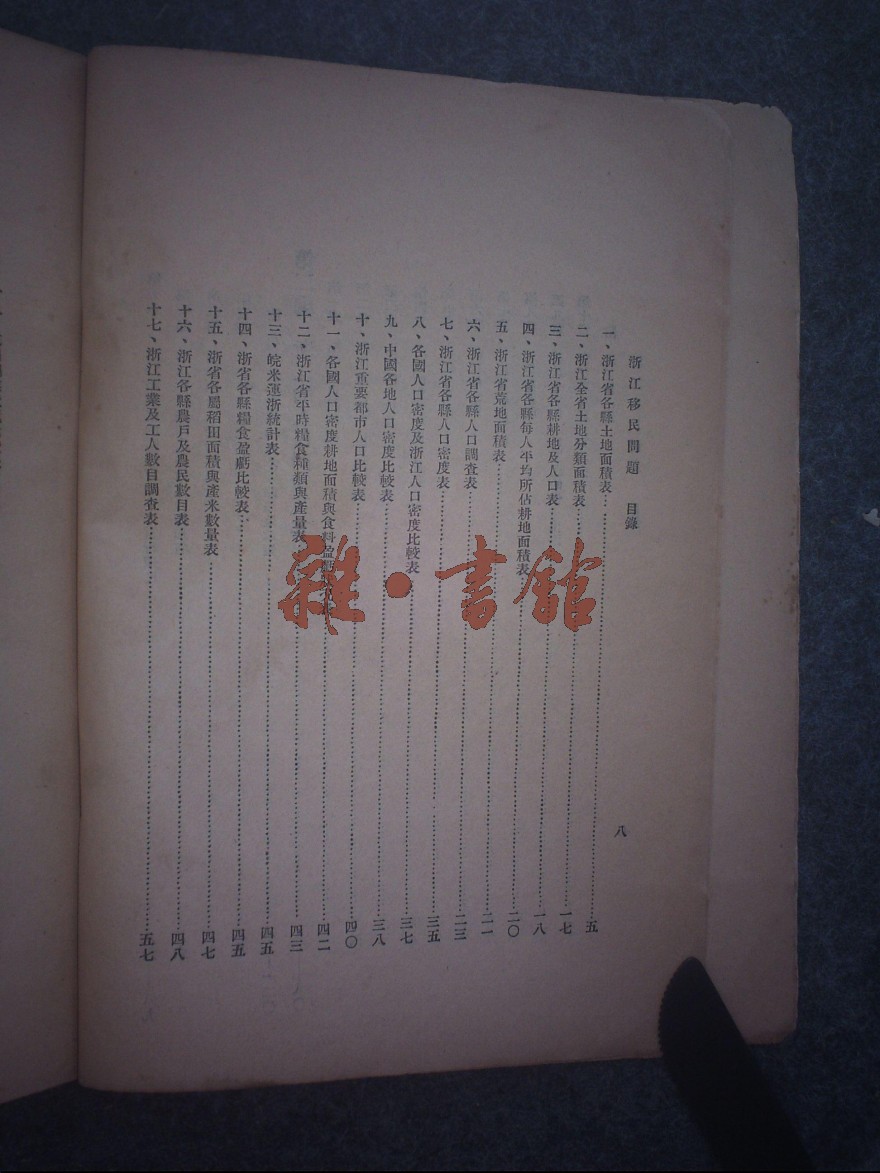 浙江移民問題 目錄 八
一、浙江省各縣土地面積表……五
二、浙江全省土地分類面積表……一七
三、浙江省各縣耕地及人口表……一八
四、浙江省各縣每人平均所佔耕地面積表……二〇
五、浙江省荒地面積表……二一
六、浙江省各縣人口調查表……二三
七、浙江省各縣人口密度表……三五
八、各國人口密度及浙江人口密度比較表……三七
九、中國各地人口密度比較表……三八
十、浙江重要都市人口比較表……四〇
十一、各國人口密度耕地面積與食料盈……四二
十二、浙江省平時糧食種類與產量表……四三
十三、皖米運浙統計表……四五
十四、浙省各縣糧食盈虧比較表……四五
十五、浙省各屬稻田面積與產米數量表……四七
十六、浙江各縣農戶及農民數目表……四八
十七、浙江工業及工人數目調查表……五七
雜·書館